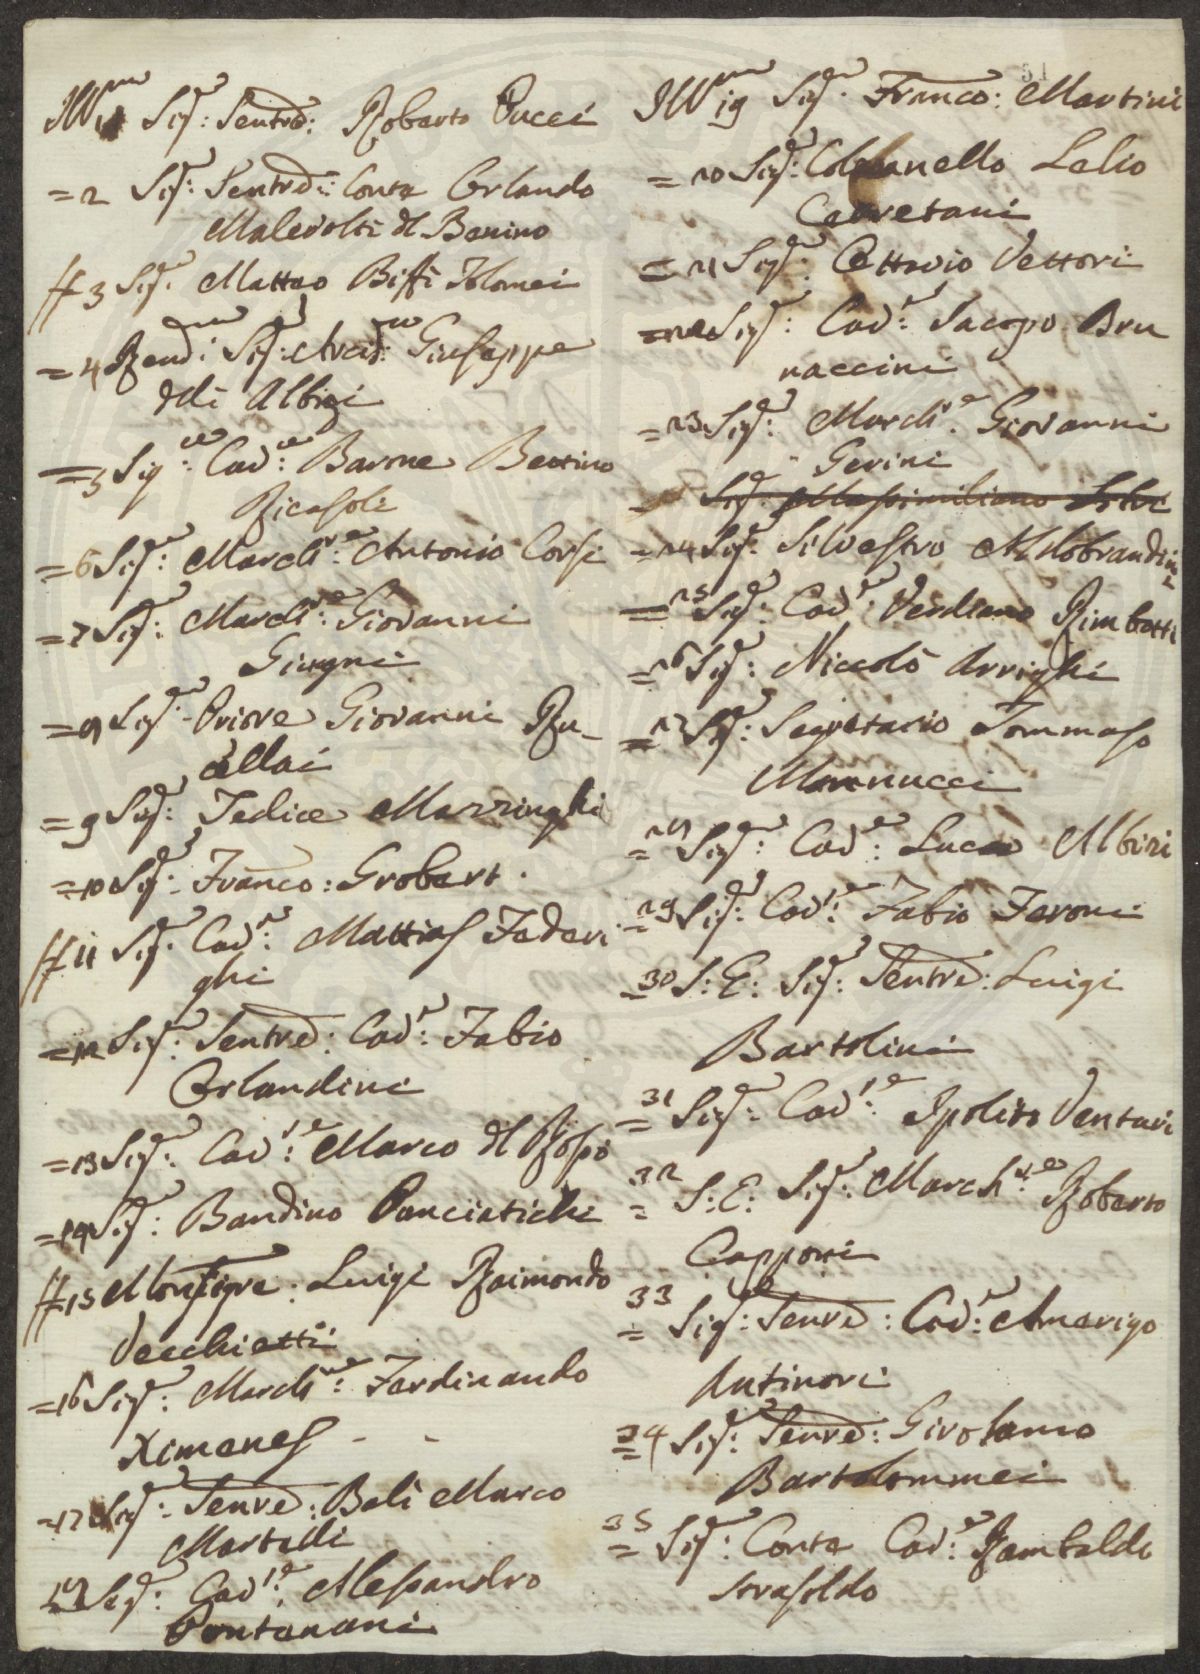 Ill.mo 1 Sig.r Senatre: Roberto Pucci
= 2 Sig.r: Senatre: Conte Orlando
Malevolti d'l Benino
ff 3 Sig.r Matteo Biffi Tolomei
= 4 Revd.mo: Sig.r: Arcid.no: Giuseppe
d'lli Albizi
= 5 Sig.re: Cav.re: Barone Bettino
Ricasoli
= 6 Sig.re: March.se: Antonio Corsi
= 7 Sig.re: March.se: Giovanni
Giugni
= 8 Sig.re: Priore Giovanni Ru-
cellai
= 9 Sig.r: Tedice Mazzinghi
= 10 Sig.r: Franco: Grobert.
ff 11 Sig.r: Cav.r: Mattias Federi
ghi
= 12 Sig.r: Senatre: Cav.r: Fabio
Orlandini
= 13 Sig.r: Cav.re: Marco d'l Rosso
= 14 Sig.r: Bandino Panciatichi
ff 15 Monsigre: Luigi Raimondo
Vecchietti
= 16 Sig.r: March.se: Ferdinando
Ximenes - -
= 17 Sig.r: Senre: Balì Marco
Martelli
18 Sig.r: Cav.re: Alessandro
Pontanani
51
Ill.mo 19 Sig.r: Franco: Martini
= 20 Sig.r: Colonnello Lelio
Cerretani
= 21 Sig.r: Ottavio Vettori
= 22 Sig.r: Cav.r: Jacopo Bru
naccini
= 23 Sig.r: March.e: Giovanni
Gerini
Sig.r: Massimiliano
= 24 Sig.r: Silvestro Aldobrandini
= 25 Sig.r: Cav.r: Verdiano Rimbotti
= 26 Sig.r: Niccolò Arrighi
= 27 Sig.r: Segretario Tommaso
Mannucci
= 28 Sig.r: Cav.e: Luca Albizi
= 29 Sig.r: Cav.re: Fabio Feroni
= 30 S: E: Sig.r: Senatre: Luigi
Bartolini
= 31 Sig.r: Cav.re: Ipolito Venturi
= 32 S: E: Sig.r: March.se: Roberto
Capponi
= 33 Sig.r: Senre: Cav.r: Amerigo
Antinori
= 34 Sig.r: Senre: Girolamo
Bartolommei
= 35 Sig.r: Conte Cav.r: Rambaldo
Strasoldo